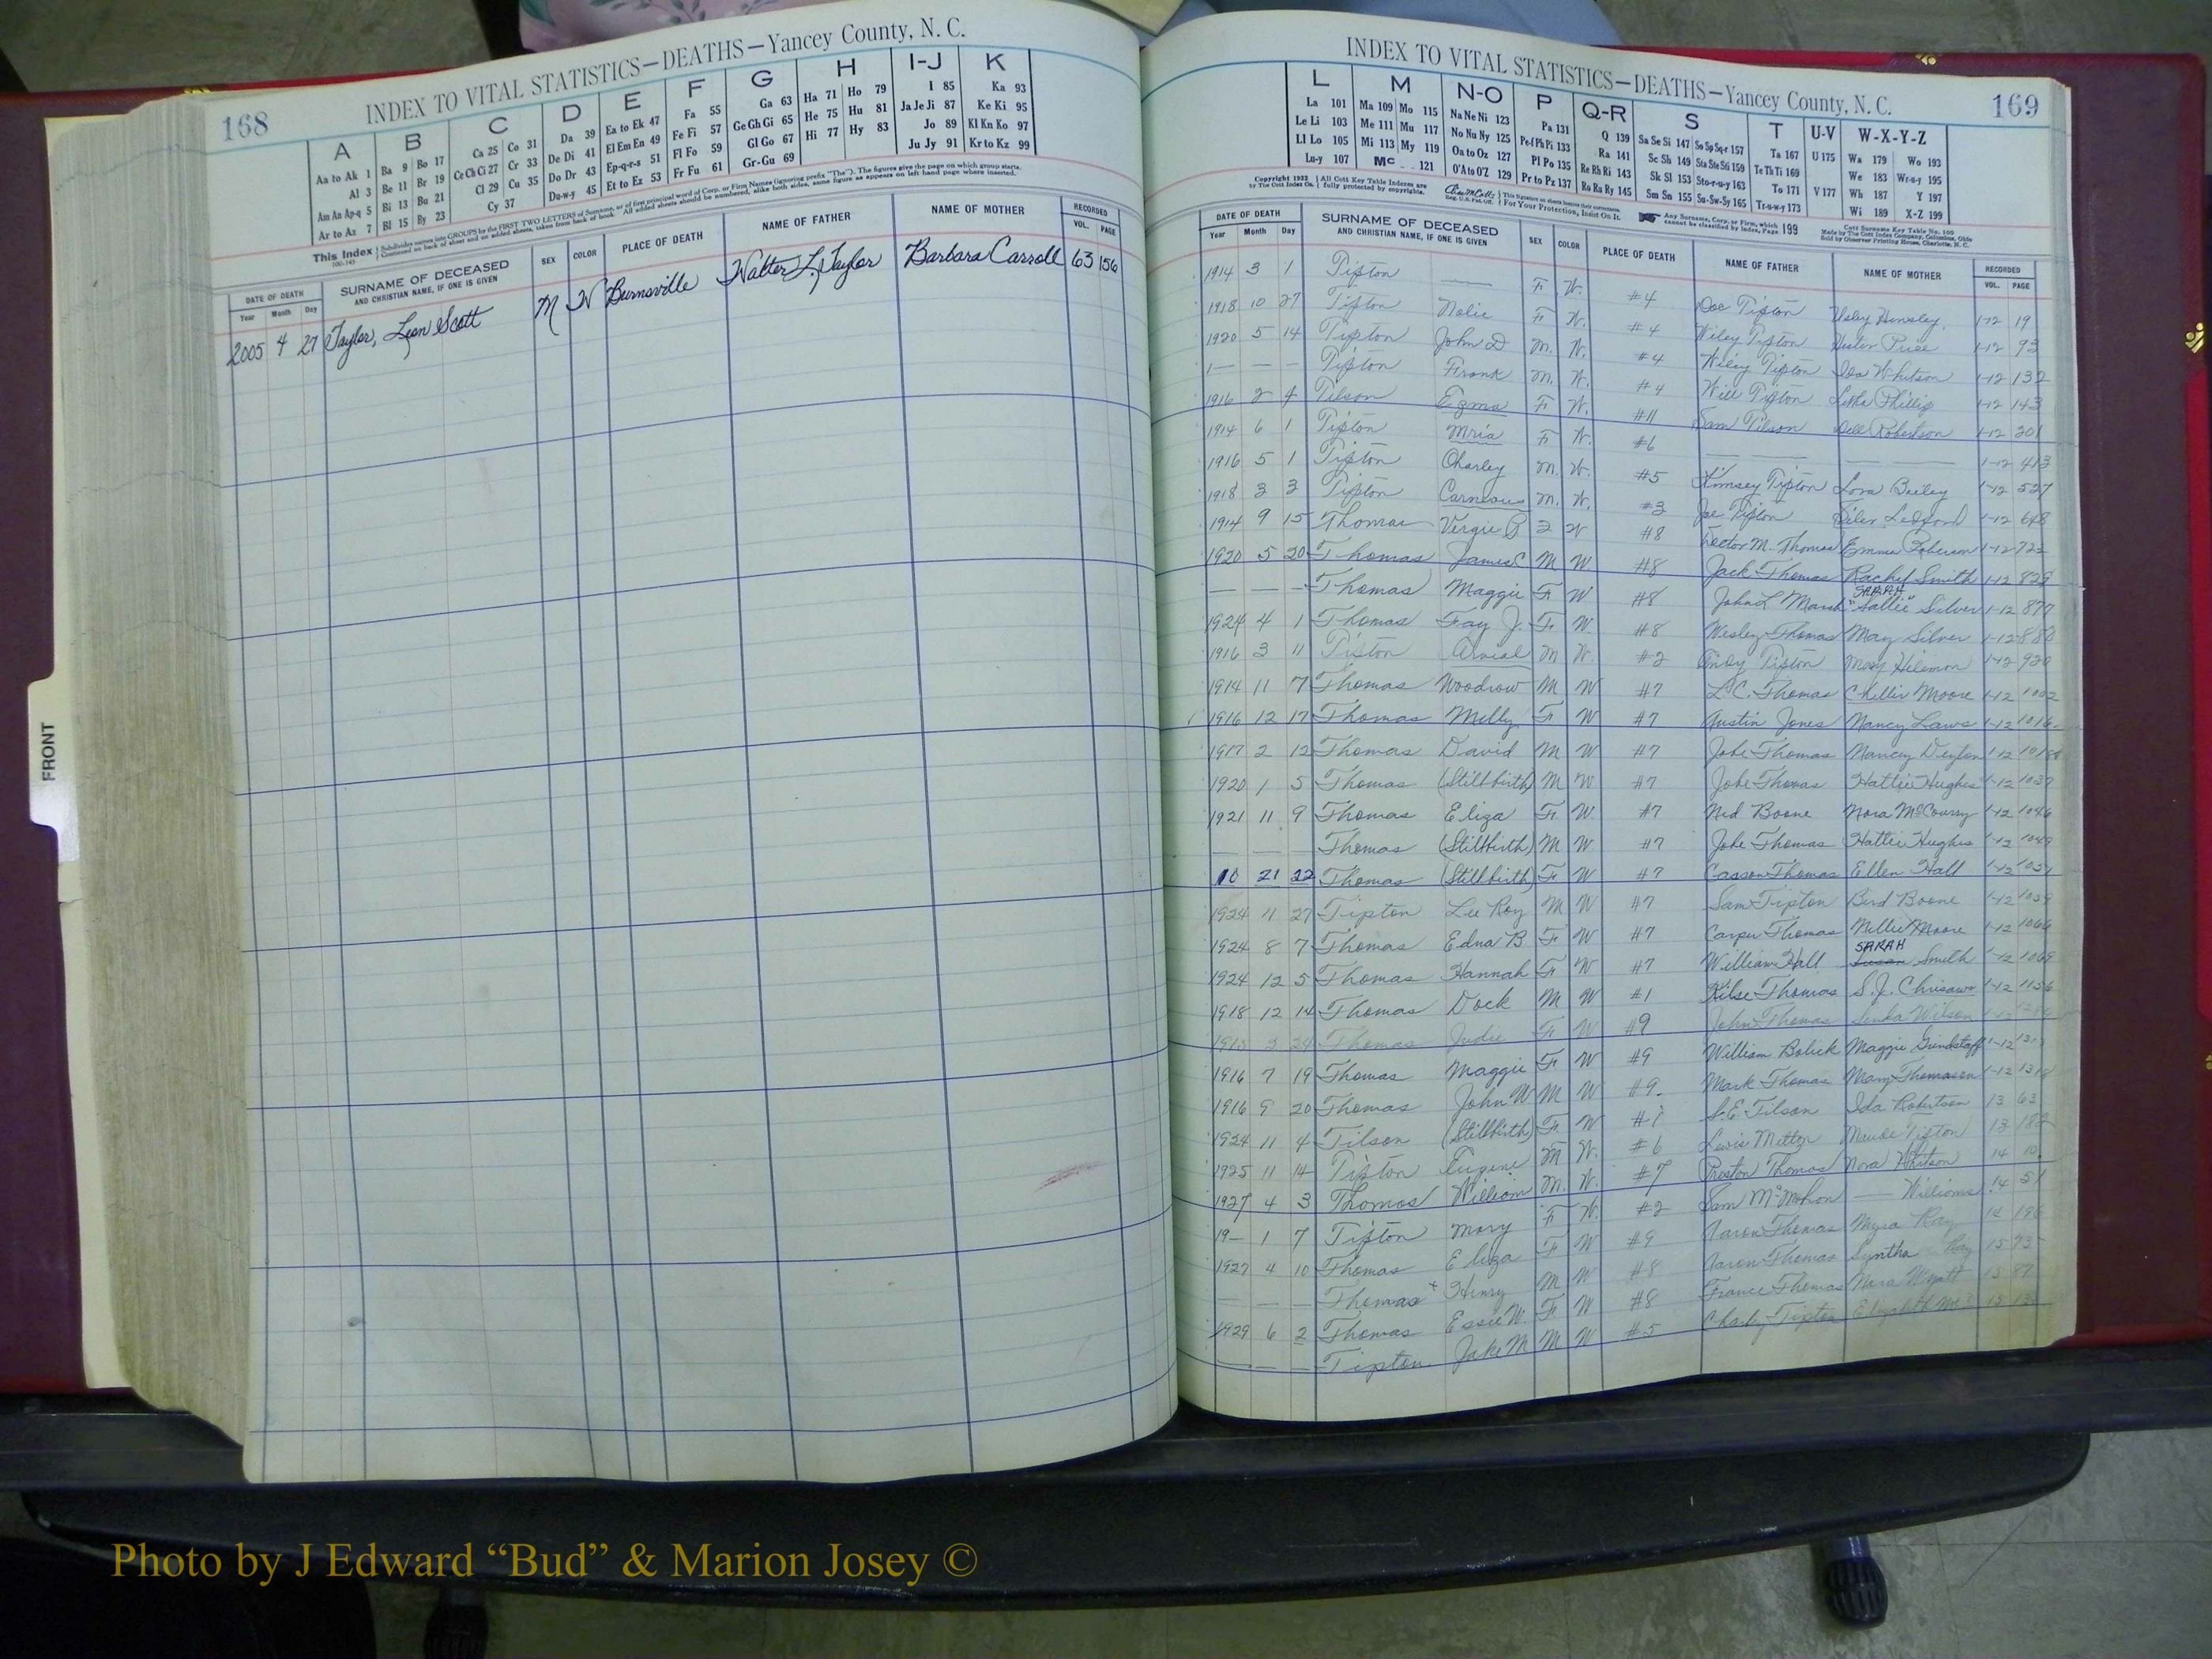 168
INDEX TO VITAL STATISTICS—DEATHS—Yancey County, N. C.
A B C D E F G H I-J K
Aa to Ak 1 Ba 9 Bo 17 Ca 25 Co 31 Da 39 Ea to Ek 47 Fa 55 Ga 63 Ha 71 Ho 79 I 85 Ka 93
Al 3 Be 11 Br 19 Ce Ch Ci 27 Cr 33 De Di 41 El Em En 49 Fe Fi 57 Ge Gh Gi 65 He 75 Hu 81 Ja Je Ji 87 Ke Ki 95
Am An Ap-q 5 Bi 13 Bu 21 Cl 29 Cu 35 Do Dr 43 Ep-q-r-s 51 Fl Fo 59 Gl Go 67 Hi 77 Hy 83 Jo 89 Kl Kn Ko 97
Ar to Az 7 Bl 15 By 23 Cy 37 Du-w-y 45 Et to Ez 53 Fr Fu 61 Gr-Gu 69 Ju Jy 91 Kr to Kz 99
This Index Subdivides names into GROUPS by the FIRST TWO LETTERS of Surname, or of first principal word of Corp. or Firm Names (ignoring prefix "The"). The figures give the page on which group starts.
Continued on back of sheet and on added sheets, taken from back of book. All added sheets should be numbered, alike both sides, same figure as appears on left hand page where inserted.
DATE OF DEATH SURNAME OF DECEASED AND CHRISTIAN NAME, IF ONE IS GIVEN SEX COLOR PLACE OF DEATH NAME OF FATHER NAME OF MOTHER RECORDED
Year Month Day VOL. PAGE
2005 4 27 Taylor, Leon Scott M W Burnsville Walter L. Taylor Barbara Carroll 63 156
FRONT
INDEX TO VITAL STATISTICS—DEATHS—Yancey County, N. C.
169
L M N-O P Q-R S T U-V W-X-Y-Z
La 101 Ma 109 Mo 115 Na Ne Ni 123 Pa 131 Q 139 Sa Se Si 147 So Sp Sq-r 157 Ta 167 U 175 Wa 179 Wo 193
Le Li 103 Me 111 Mu 117 No Nu Ny 125 Pe-f Ph Pi 133 Ra 141 Sc Sh 149 Sta Ste Sti 159 Te Th Ti 169 We 183 Wr-u-y 195
Ll Lo 105 Mi 113 My 119 Oa to Oz 127 Pl Po 135 Re Rh Ri 143 Sk Sl 153 Sto-r-u-y 163 To 171 V 177 Wh 187 Y 197
Lu-y 107 Mc 121 O'A to O'Z 129 Pr to Pz 137 Ro Ru Ry 145 Sm Sn 155 Su-Sw-Sy 165 Tr-u-w-y 173 Wi 189 X-Z 199
Copyright 1932 by The Cott Index Co. All Cott Key Table Indexes are fully protected by copyrights. For Your Protection, Insist On It. Any Surname, Corp. or Firm, which cannot be classified by Index, Page 199
Cott Surname Key Table No. 100
Made by The Cott Index Company, Columbus, Ohio
Sold by Observer Printing House, Charlotte, N. C.
DATE OF DEATH SURNAME OF DECEASED AND CHRISTIAN NAME, IF ONE IS GIVEN SEX COLOR PLACE OF DEATH NAME OF FATHER NAME OF MOTHER RECORDED
Year Month Day VOL. PAGE
1914 3 1 Tipton —— F W. #4 Doc Tipton Hensley 1-12 19
1918 10 27 Tipton Nolie F W. #4 Wiley Tipton Hester Price 1-12 93
1920 5 14 Tipton John D M. W. #4 Wiley Tipton Ida Whitson 1-12 132
— — — Tipton Frank M. W. #4 Will Tipton Letha Phillip 1-12 143
1916 2 4 Tilson Ezma F W. #11 Sam Tilson Dell Robertson 1-12 201
1914 6 1 Tipton Mria F W. #6 — — 1-12 413
1916 5 1 Tipton Charley M. W. #5 Kimsey Tipton Lova Bailey 1-12 527
1918 3 3 Tipton Carneous M. W. #3 Joe Tipton Ledford 1-12 648
1914 9 15 Thomas Vergie B F W #8 Doctor M. Thomas Emma Roberson 1-12 722
1920 5 20 Thomas James C M W #8 Jack Thomas Rachel Smith 1-12 825
— — — Thomas Maggie F W #8 John L Marsh SARAH "Sallie" Silver 1-12 877
1924 4 1 Thomas Fay J. F W #8 Wesley Thomas May Silver 1-12 880
1916 3 11 Tipton Arvial M W. #2 Andy Tipton Mary Hileman 1-12 920
1914 11 7 Thomas Woodrow M W #7 L C. Thomas Chillie Moore 1-12 1002
1916 12 17 Thomas Milly F W #7 Austin Jones Nancy Laws 1-12 1016
1917 2 12 Thomas David M W #7 Jobe Thomas Nancy Deyton 1-12 1018
1920 1 5 Thomas (Stillbirth) M W #7 Jobe Thomas Hattie Hughes 1-12 1037
1921 11 9 Thomas Eliza F W #7 Ned Boone Nora McCourry 1-12 1046
— — — Thomas (Stillbirth) M W #7 Jobe Thomas Hattie Hughes 1-12 1049
10 21 22 Thomas (Stillbirth) F W #7 Casson Thomas Ellen Hall 1-12 1057
1924 11 27 Tipton Lee Roy M W #7 Sam Tipton Bird Boone 1-12 1059
1924 8 7 Thomas Edna B F W #7 Thomas Millie Moore 1-12 1066
1924 12 5 Thomas Hannah F W #7 William Hall SARAH Susan Smith 1-12 1069
1918 12 14 Thomas Dock M W #1 Thomas S. J. Chrisawn 1-12 1156
1913 3 24 Thomas Judie F W #9 John Thomas Wilson 1-12
1916 7 19 Thomas Maggie F W #9 William Bolick Maggie Grindstaff 1-12
1916 9 20 Thomas John W M W #9. Mark Thomas Mary Thomason 1-12
1924 11 4 Tilson (Stillbirth) F W #1 S. E. Tilson Ida Robertson 13 63
1925 11 14 Tipton Eugene M W. #6 Lewis Mitten Maude Tipton 13 182
1927 4 3 Thomas William M. W. #7 Preston Thomas Nora Whitson 14 10
19— 1 7 Tipton Mary F W. #2 Sam McMahon — Williams 14 51
1927 4 10 Thomas Eliza F W #9 Aaron Thomas Myra Ray 14
— — — Thomas Henry M W #8 Aaron Thomas Syntha Ray 15
1929 6 2 Thomas Essie W. F W #8 France Thomas Nora Wyatt 15 87
— — — Tipton Jake M M W #5 Charley Tipton Elizabeth 15
Photo by J Edward “Bud” & Marion Josey ©